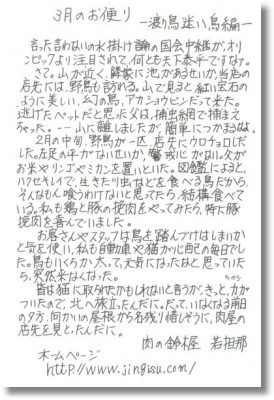 3月のお便り
―渡り鳥迷い鳥編―
言った言わないの水掛け論の国会中継が、オリ
ンピックより注目されて、何とも天下泰平ですな？
さて。山が近く、隣家に池があるせいか当店の
店先には、野鳥も訪れる。山で見ると紅い宝石の
ように美しい、幻の鳥、アカショウビンだって来た。
逃げたペットだと思った父は、捕虫網で捕まえ
ちゃった。…山に離しましたが、簡単につかまるなよ。
2月の中旬、野鳥が一匹、店先にウロチョロしだ
した。右足の平がないせいか、警戒心がない。父が
お米やリンゴやミカンを置いといた。図鑑によると、
ハクセキレイで、生きた小虫などを食べる鳥だから、
そんなもん喰うわけないと思ってたら、結構食べて
いる。私も鶏と豚の挽肉をやってみたら、特に豚
挽肉を喜んでいました。
お客さんやスタッフは鳥を踏んづけはしまいか
と気を使い、私も自動車や猫が心配の毎日でし
た。鳥もいくらか太って、元気になったなと思っていた
ら、突然来なくなった。
皆は猫に取られたかもしれないと言うが、きっと、力が
ついたので、北へ旅立ったんだに。だって、いなくなる前日
の夕方、向かいの屋根から名残り惜しそうに、肉屋の
店先を見とったんだに。
肉の鈴木屋 若旦那
ホームページ
http://www.jingisu.com/